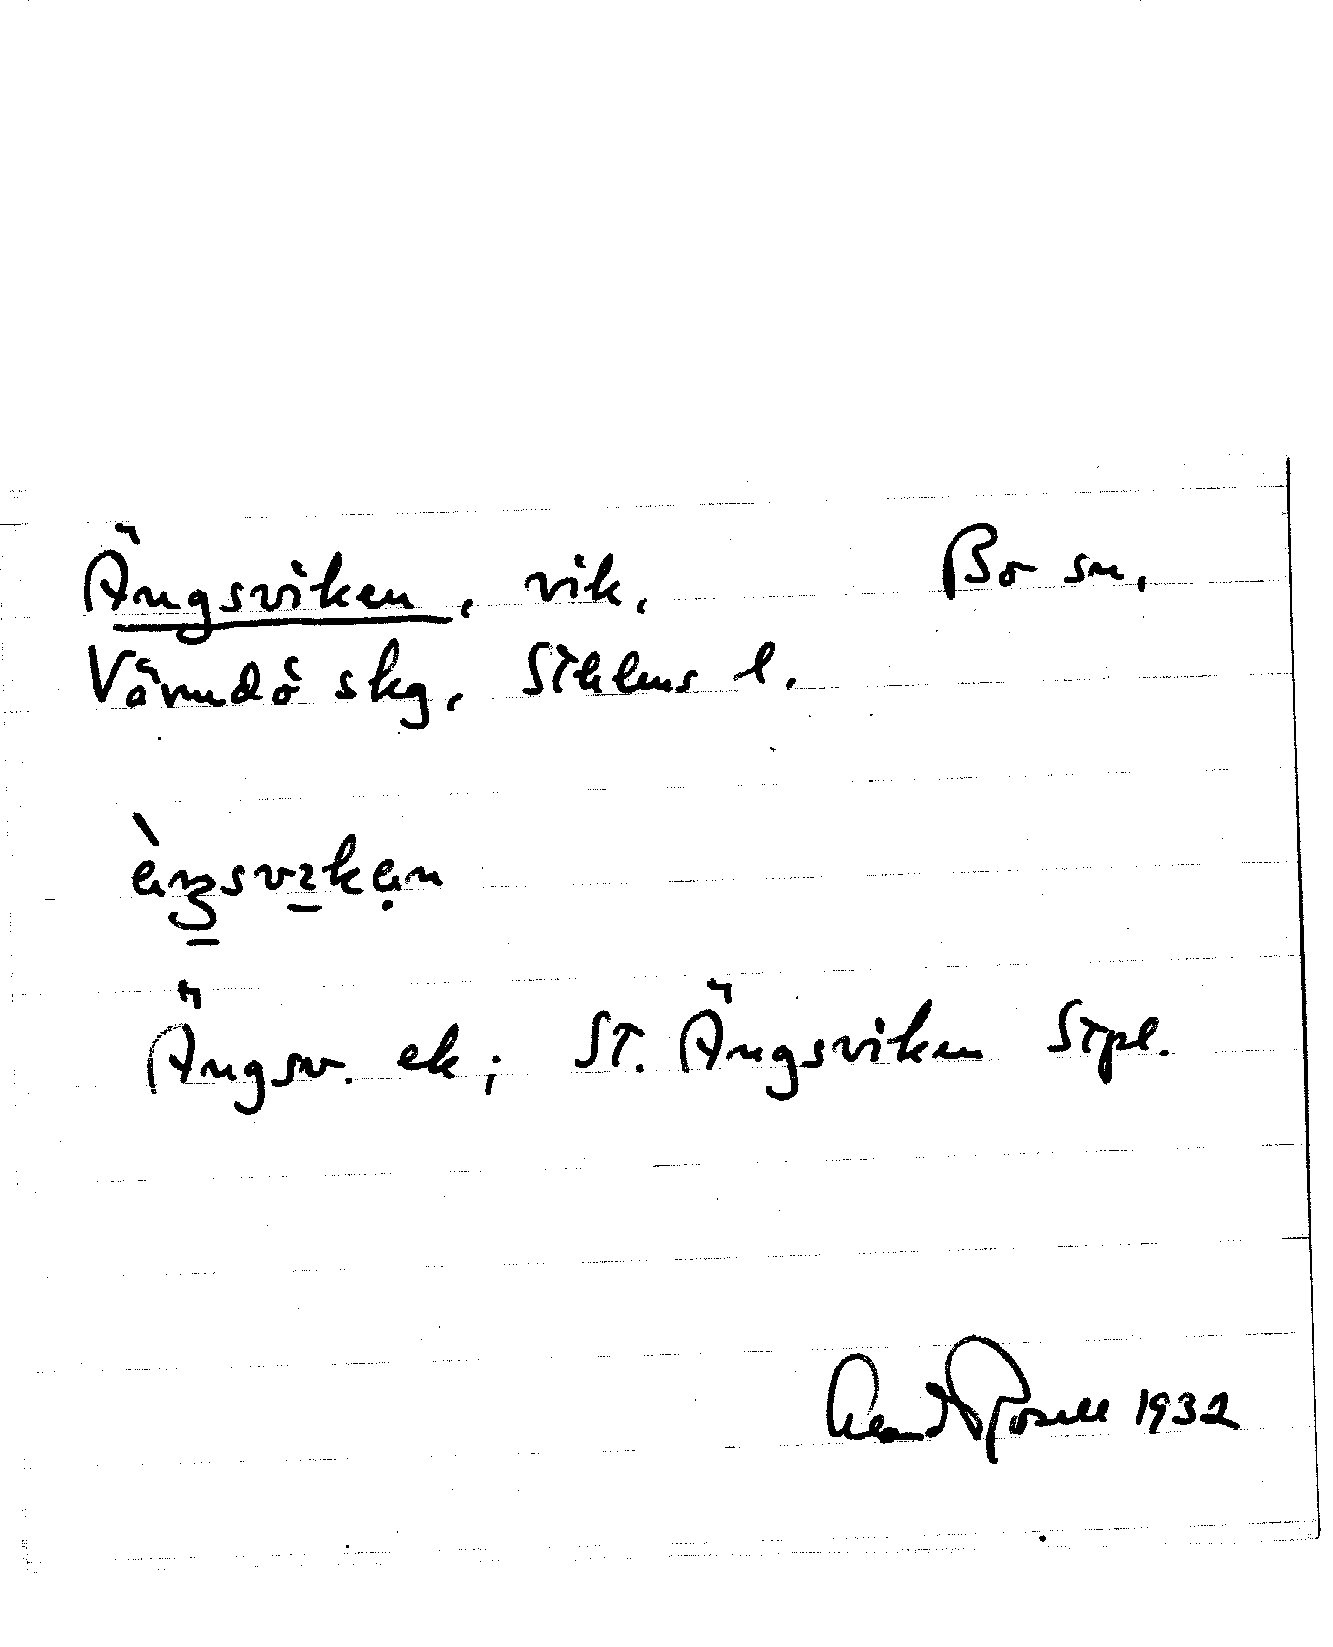 Ängsviken, vik, Bo sn,
Värmdö skg, Sthlms l.
èŋsvikən
Ängsv. ek; St. Ängsviken Stpl.
Rosell 1932